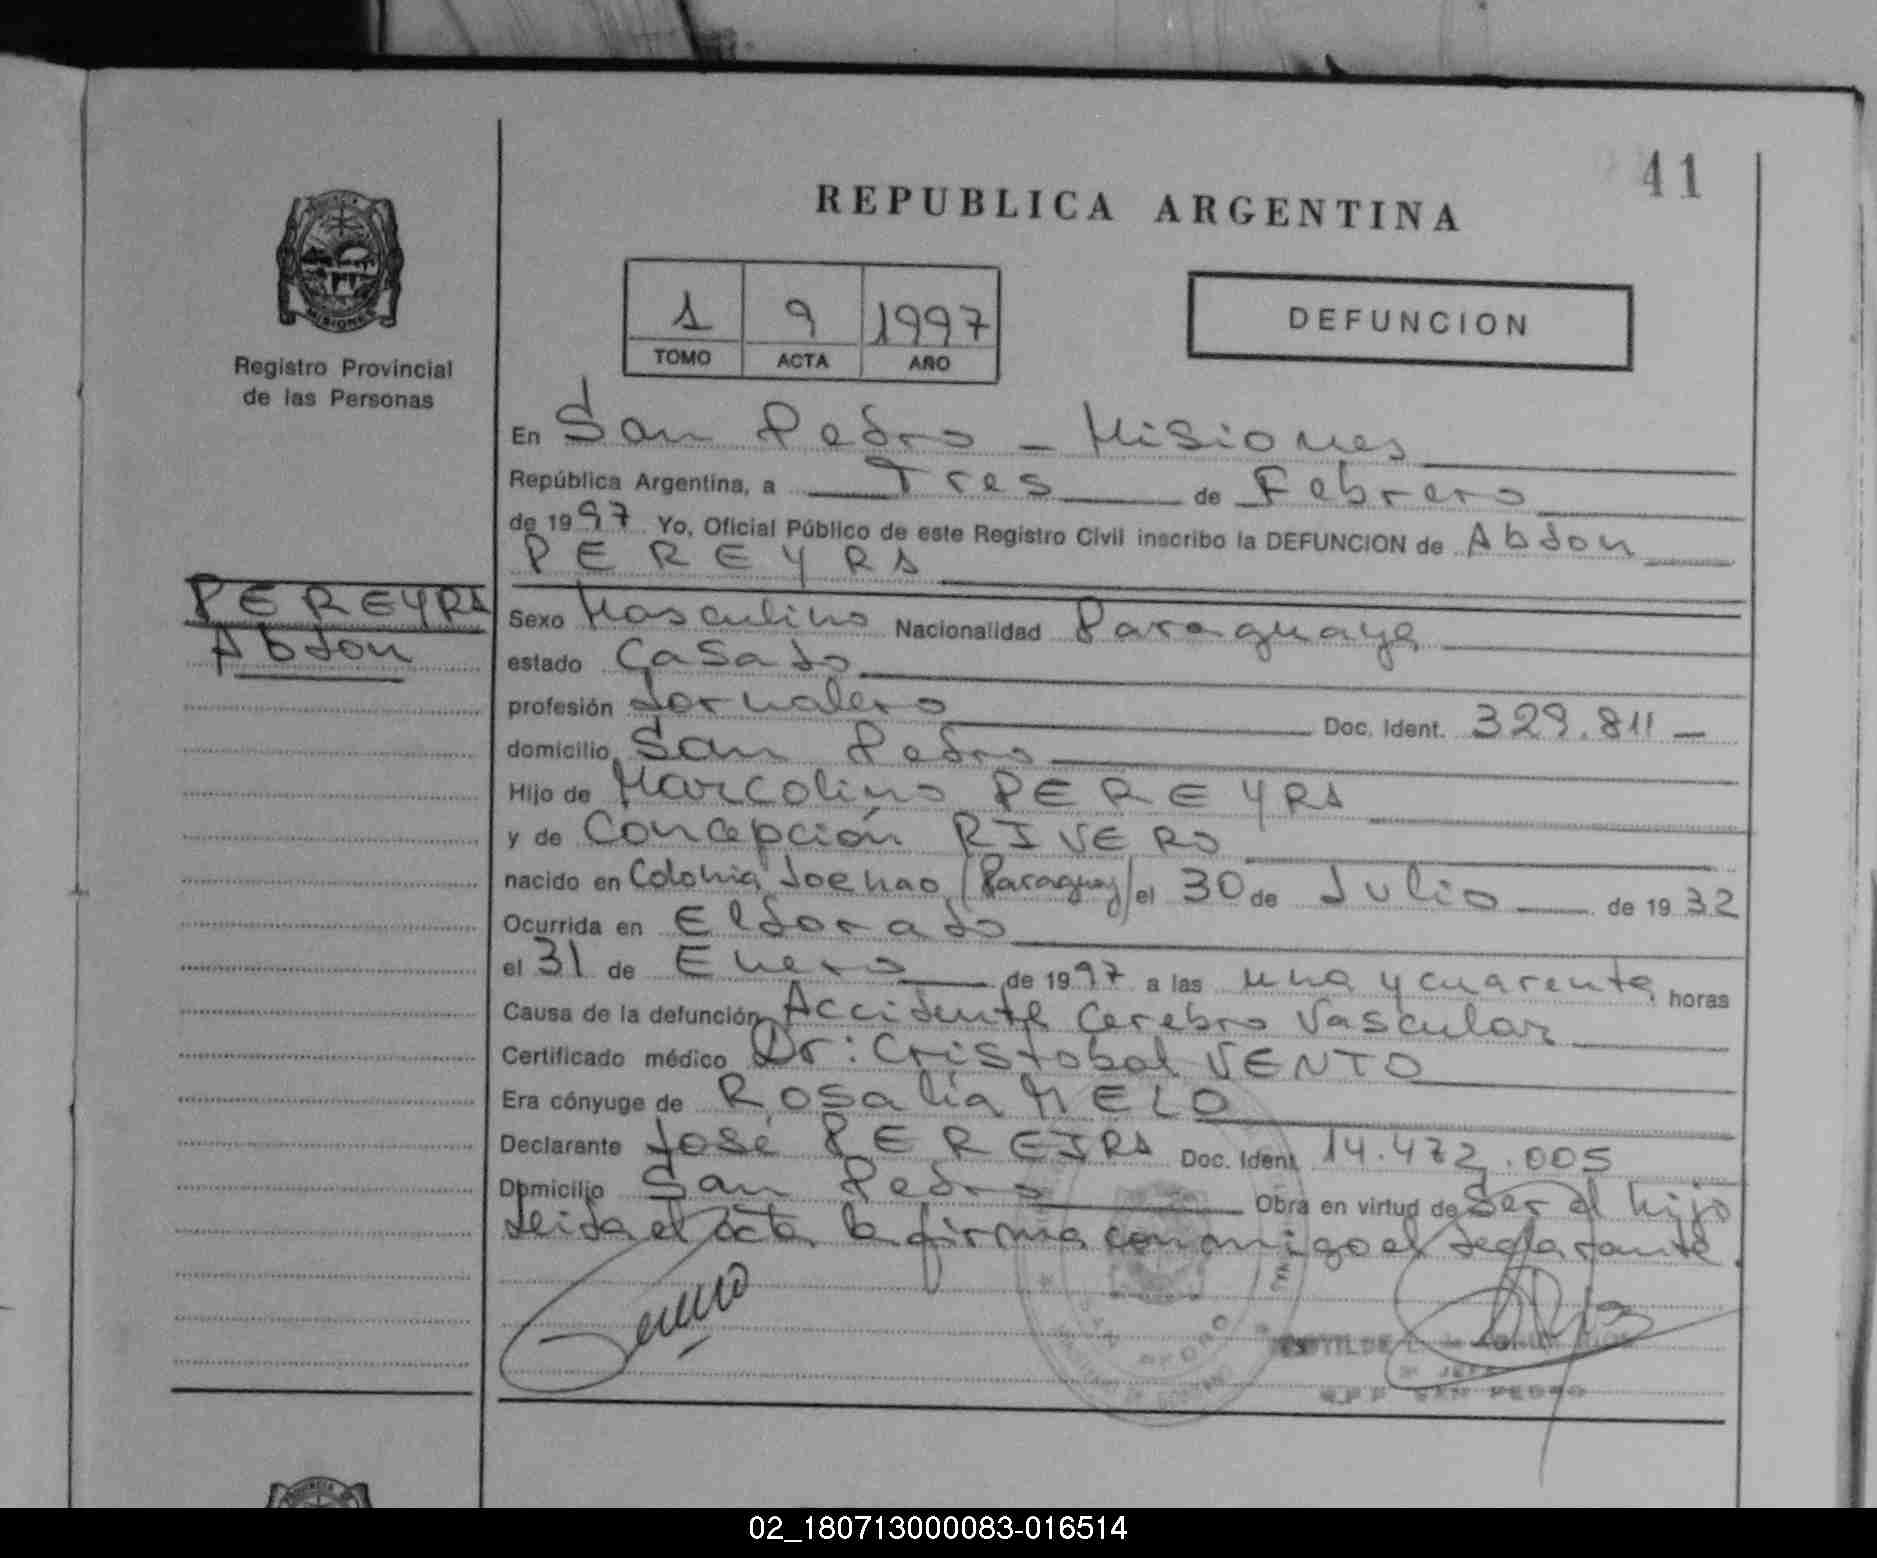 41
REPUBLICA ARGENTINA
MISIONES
Registro Provincial
de las Personas
1 9 1997
TOMO ACTA AÑO
DEFUNCION
En San Pedro - Misiones
República Argentina, a Tres de Febrero
de 1997 Yo, Oficial Público de este Registro Civil inscribo la DEFUNCION de Abdon
PEREYRA
PEREYRA
Abdon
Sexo Masculino Nacionalidad Paraguaya
estado Casado
profesión Jornalero Doc. Ident. 329.811 -
domicilio San Pedro
Hijo de Marcolino PEREYRA
y de Concepción RIVERO
nacido en Colonia Joenao (Paraguay) el 30 de Julio de 1932
Ocurrida en Eldorado
el 31 de Enero de 1997 a las una y cuarenta horas
Causa de la defunción Accidente Cerebro Vascular
Certificado médico Dr: Cristobal VENTO
Era cónyuge de Rosalía MELO
Declarante José PEREIRA Doc. Ident. 14.472.005
Domicilio San Pedro Obra en virtud de Ser el hijo
Leida el acta la firma conmigo el declarante.
SAN PEDRO
JEFE
SAN PEDRO
02_180713000083-016514